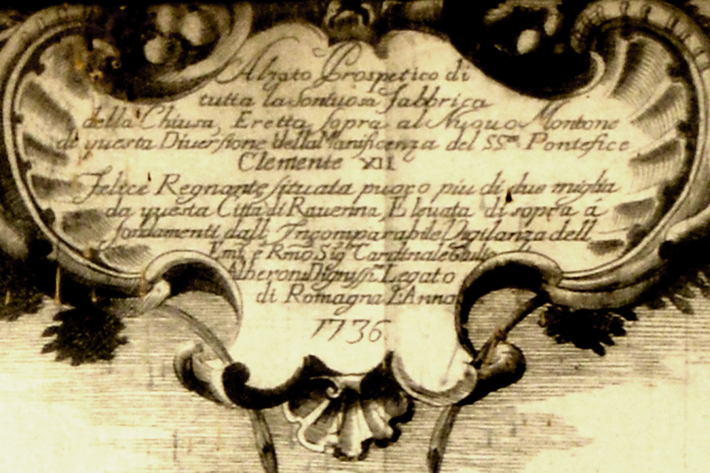 Alzato Prospetico di
tutta la Sontuosa Fabbrica
della Chiusa, Eretta sopra al Nuouo Montone
di questa Diuersione della Manificenza del SS.mo Pontefice
Clemente XII
Felice Regnante situata puoco piu di due miglia
da questa Città di Rauenna Eleuata di sopra á
fondamenti dall' Incomparabile Vigilanza dell
Em.o e R.mo Sig.r Cardinale Giulio
Alberoni Digniss.o Legato
di Romagna L'Anno
1736